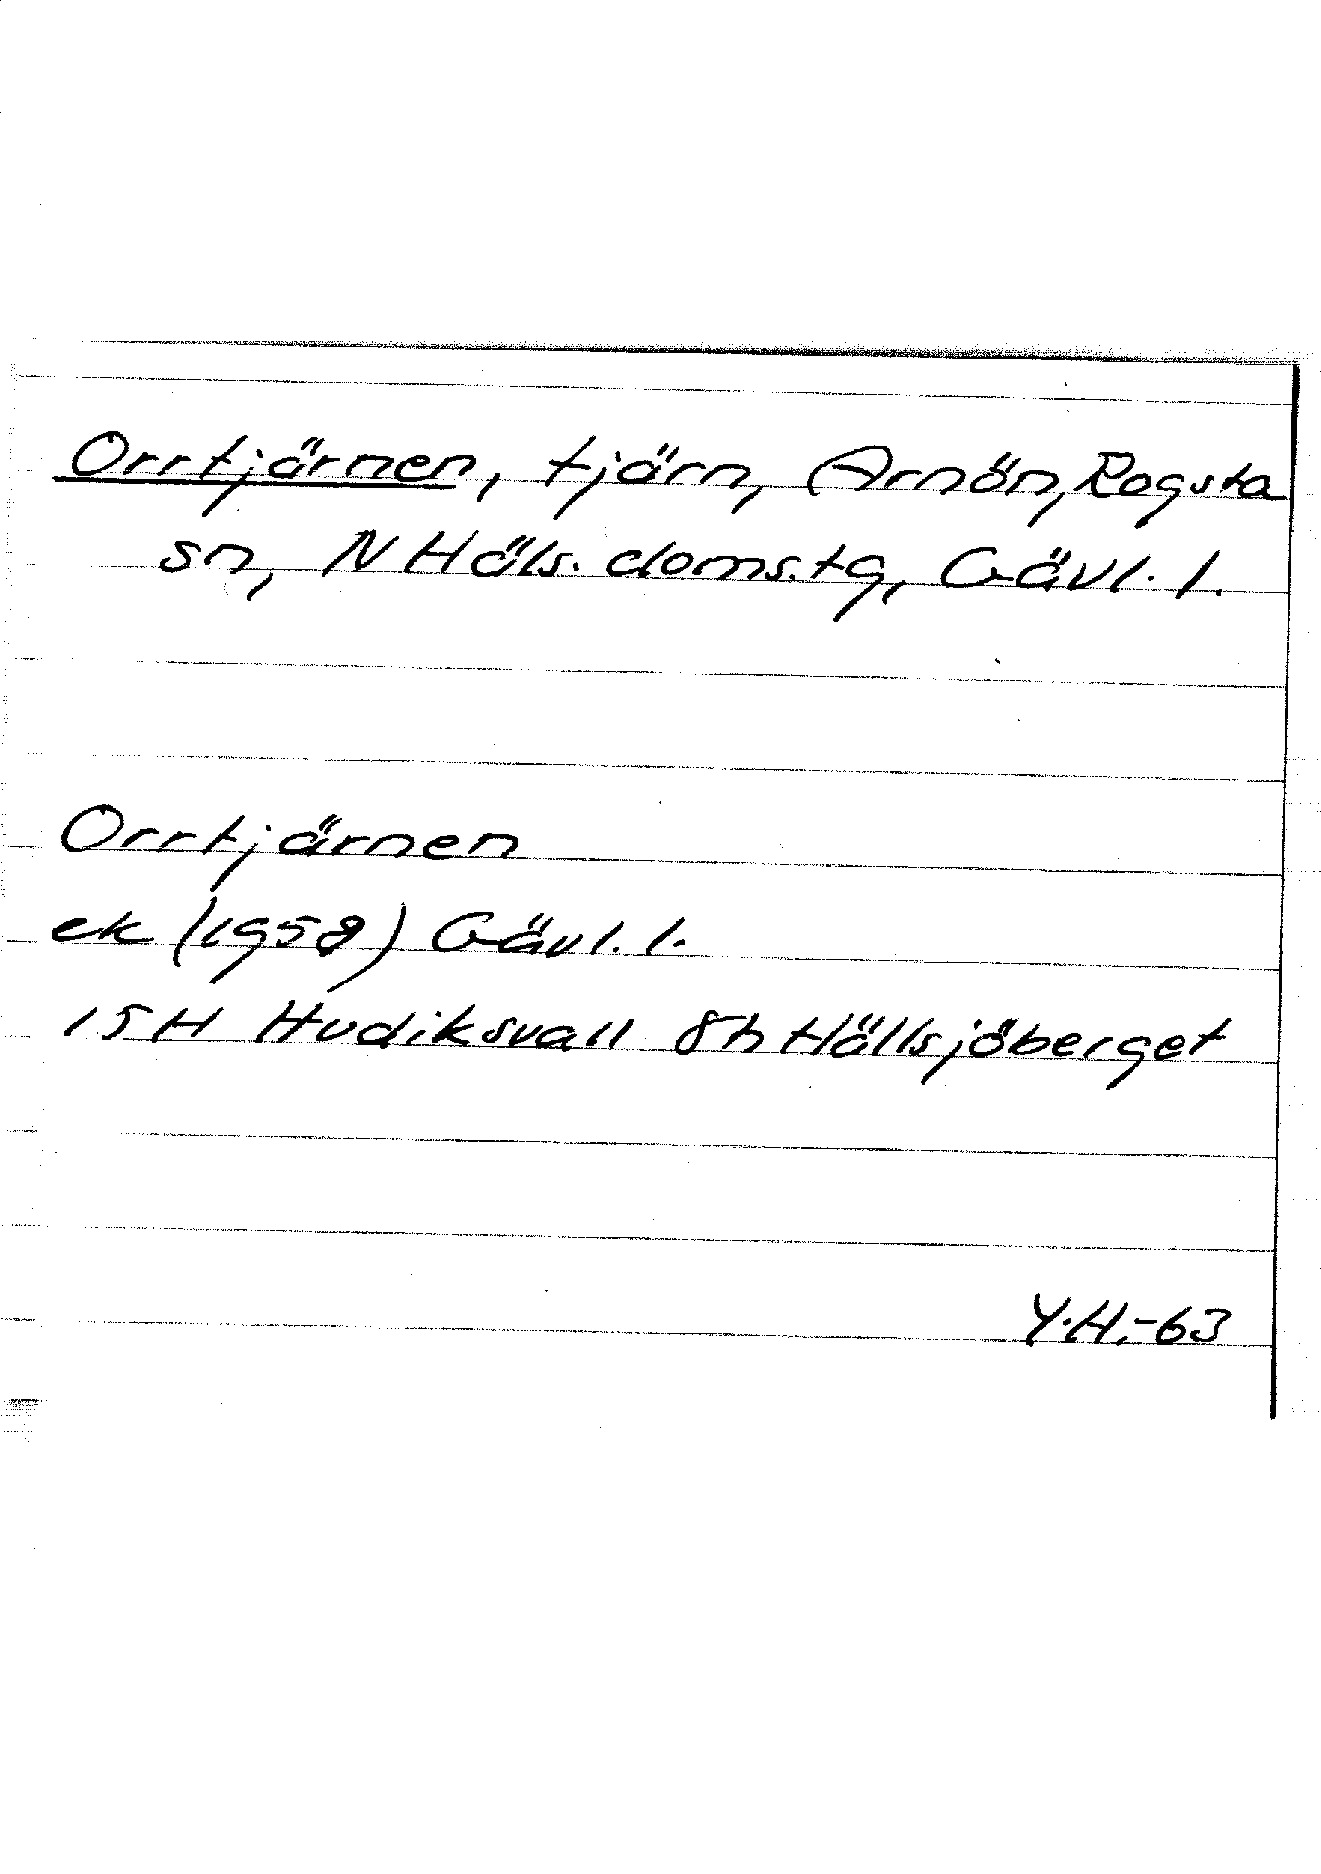 Orrtjärnen, tjärn, Arnön, Rogsta
sn, N Häls. doms.tg, Gävl. l.
Orrtjärnen
ek (1958) Gävl. l.
15H Hudiksvall 8h Hällsjöberget
Y.H.-63